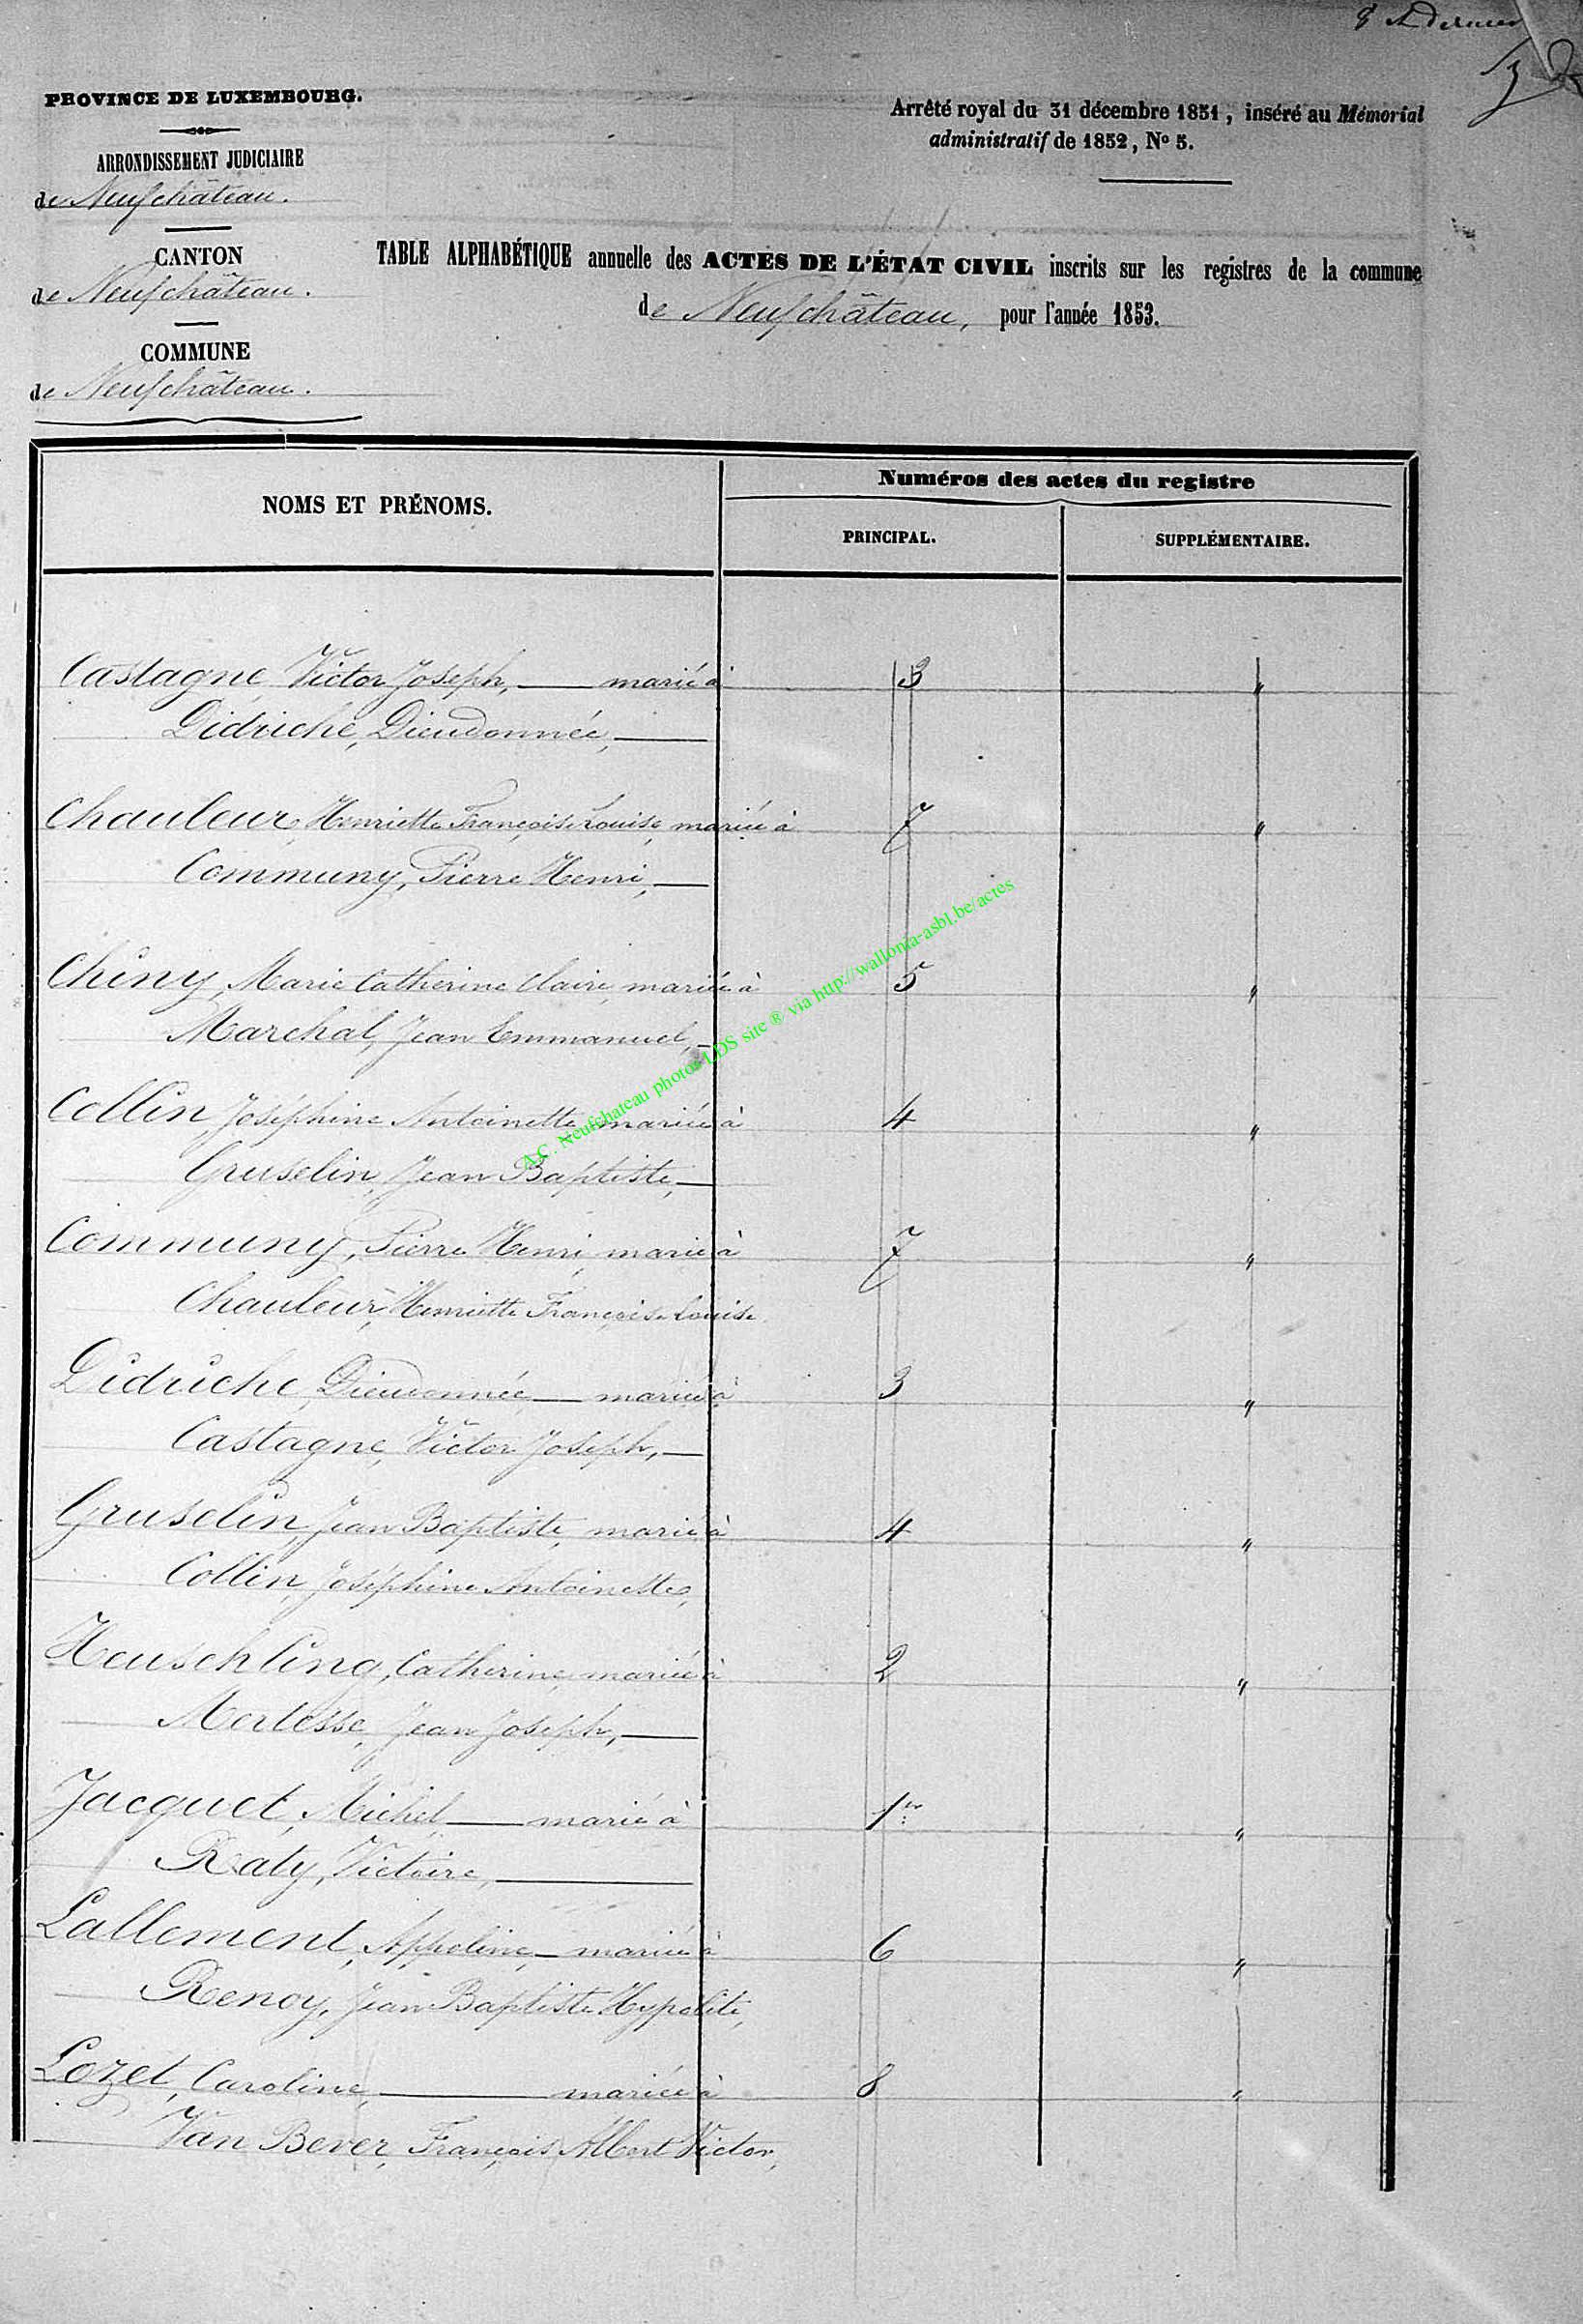 PROVINCE DE LUXEMBOURG.
ARRONDISSEMENT JUDICIAIRE
de Neufchâteau.
CANTON
de Neufchâteau.
COMMUNE
de Neufchâteau.
Arrêté royal du 31 décembre 1851, inséré au Mémorial
administratif de 1852, No 5.
TABLE ALPHABÉTIQUE annuelle des ACTES DE L'ÉTAT CIVIL inscrits sur les registres de la commune
de Neufchâteau, pour l'année 1853.
NOMS ET PRÉNOMS.
Numéros des actes du registre
PRINCIPAL.
SUPPLÉMENTAIRE.
Castagne, Victor Joseph, — marié à 3 "
Didriche, Dieudonnée, —
Chauleur, Henriette Françoise Louise, mariée à 7 "
Communy, Pierre Henri, —
Chiny, Marie Catherine Claire, mariée à 5 "
Marchal, Jean Emmanuel, —
Collin, Joséphine Antoinette, mariée à 4 "
Gruselin, Jean Baptiste, —
Communy, Pierre Henri, marié à 7 "
Chauleur, Henriette Françoise Louise
Didriche, Dieudonnée, — mariée à 3 "
Castagne, Victor Joseph, —
Gruselin, Jean Baptiste, marié à 4 "
Collin, Joséphine Antoinette,
Heuschling, Catherine, mariée à 2 "
Mertesse, Jean Joseph, —
Jacquet, Michel, — marié à 1er "
Raty, Victoire, —
Lallement, Appoline, — mariée à 6 "
Renoy, Jean Baptiste Hypolite,
Lozet, Caroline, — mariée à 8 "
Van Bever, François Albert Victor,
A.C. Neufchateau photos LDS site ® via http://wallonia-asbl.be/actes